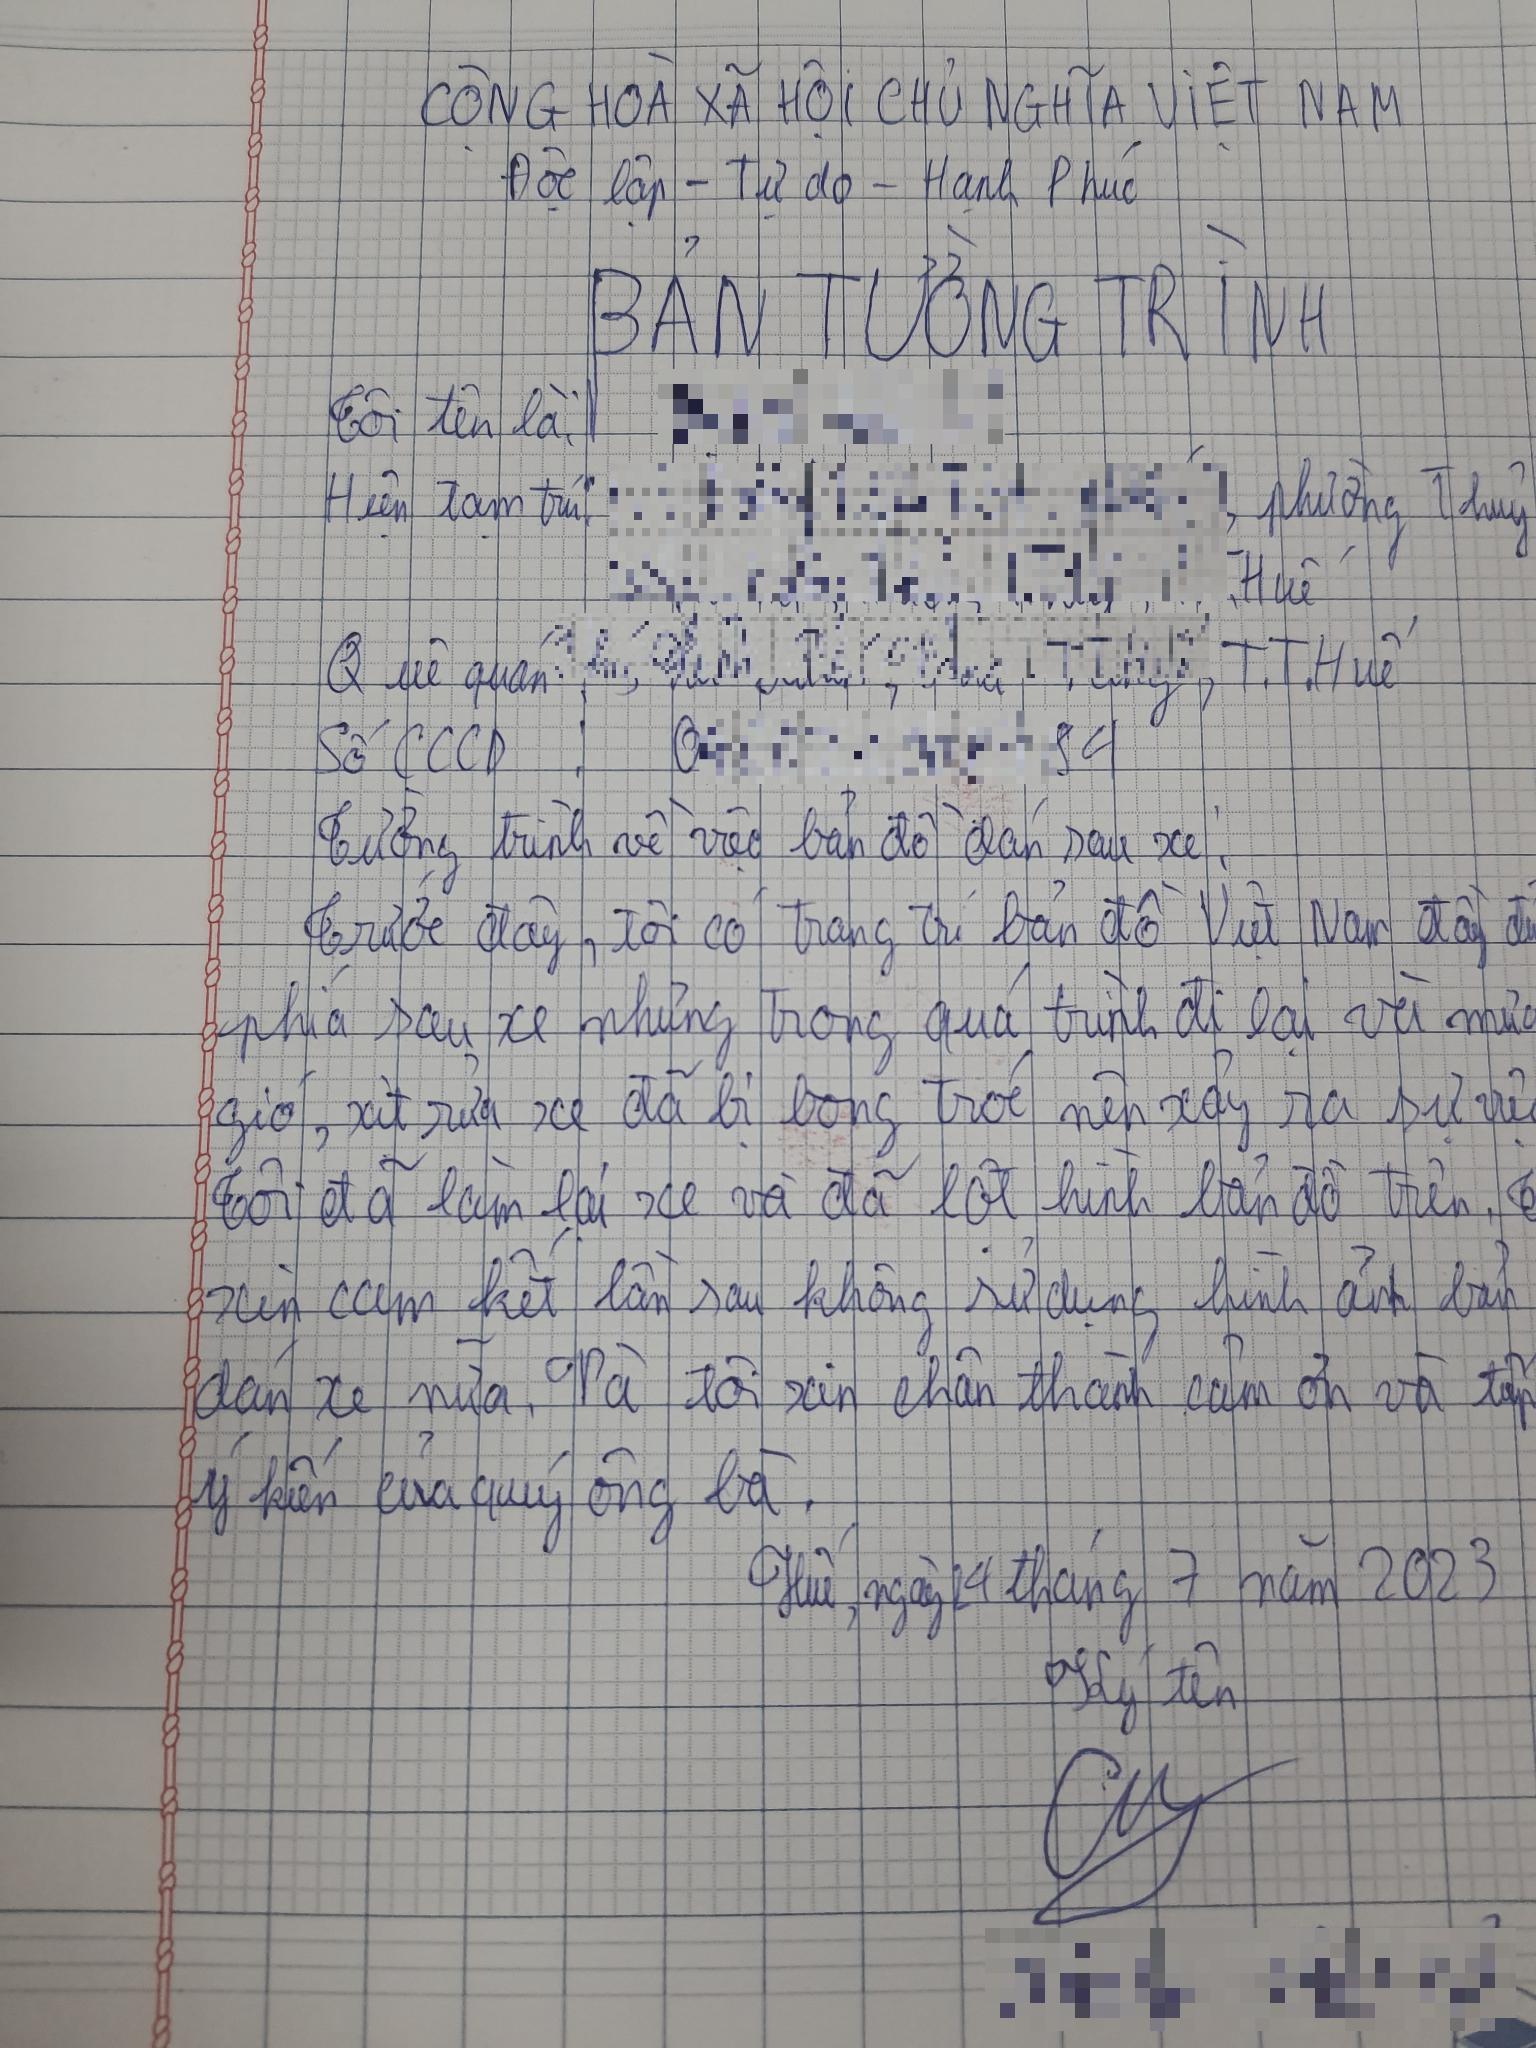 CỘNG HOÀ XÃ HỘI CHỦ NGHĨA VIỆT NAM
Độc lập - Tự do - Hạnh Phúc
BẢN TƯỜNG TRÌNH
Tôi tên là:
Hiện tạm trú: , phường Thuỷ
Huế
Quê quán , T.T.Huế
Số CCCD : 0 94
Tường trình về việc bản đồ dán sau xe:
Trước đây, tôi có trang trí bản đồ Việt Nam đầy đủ
phía sau xe nhưng trong quá trình đi lại và mưa
gió, xịt rửa xe đã bị bong tróc nên xảy ra sự việc
Tôi đã làm lại xe và đã lột hình bản đồ trên.
xin cam kết lần sau không sử dụng hình ảnh bản
dán xe nữa. Và tôi xin chân thành cảm ơn và tiếp
ý kiến của quý ông bà.
Huế, ngày 14 tháng 7 năm 2023
Ký tên